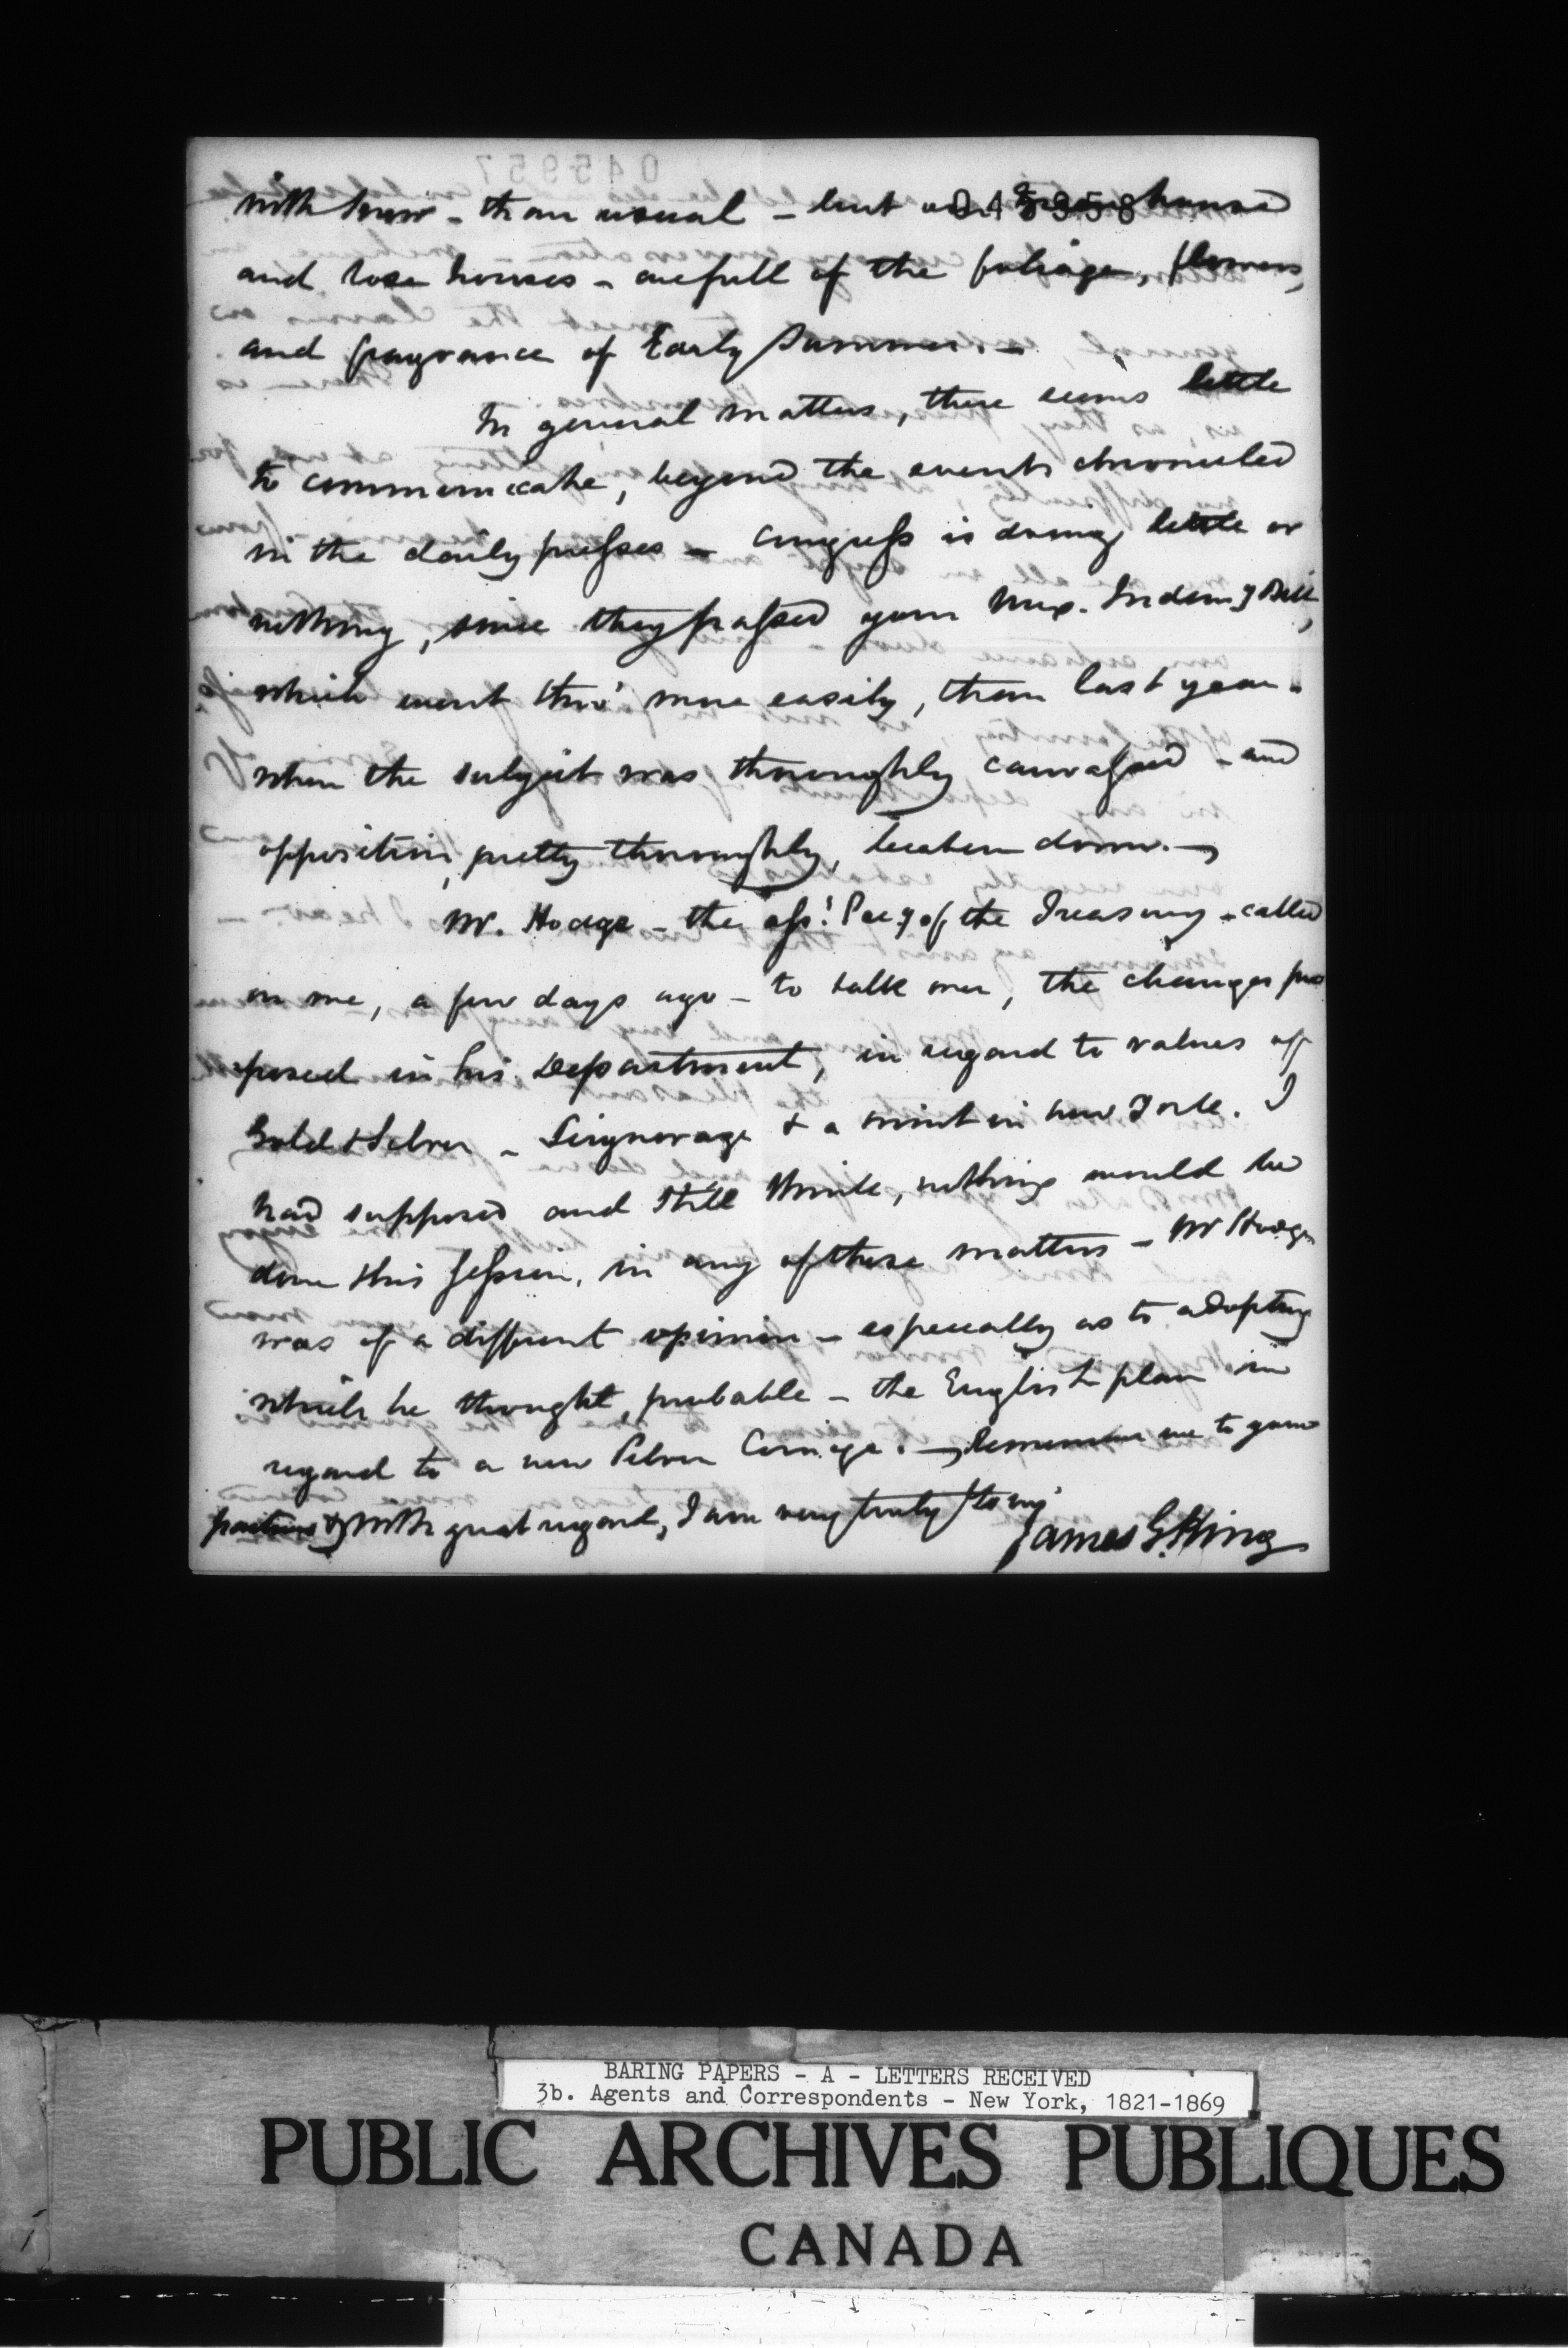 045958
with snow - than usual - but our Green houses
and rose houses - are full of the foliage, flowers,
and fragrance of Early Summer. -
In general matters, there seems little
to communicate, beyond the events chronicled
in the daily presses - Congress is doing little or
nothing, since they passed your Mex. Indemy Bill,
which went thro' more easily, than last year -
when the subject was thoroughly canvassed - and
opposition, pretty thoroughly, beaten down. -
Mr. Hodge - the Asst. Secy of the Treasury - called
on me, a few days ago - to talk over, the changes pro
posed in his Department, in regard to values of
Gold & Silver - Seignorage & a mint in New York. I
had supposed and still think, nothing would be
done this session, in any of these matters - Mr Hodge
was of a different opinion - especially as to adopting
which he thought, probable - the English plan in
regard to a new Silver Coinage. - Remember me to your
partners & with great regard, I am very truly
James G. King
BARING PAPERS - A - LETTERS RECEIVED
3b. Agents and Correspondents - New York, 1821-1869
PUBLIC ARCHIVES PUBLIQUES
CANADA